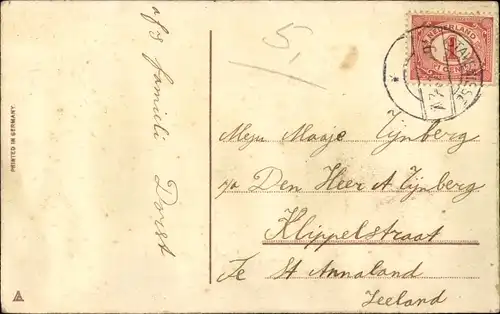 afz familie Dorst
5,-
NEDERLAND
1
PRINTED IN GERMANY.
Mej Maatje Tijnberg
p/a Den Heer A Tijnberg
Klippelstraat
Te St Annaland
Zeeland